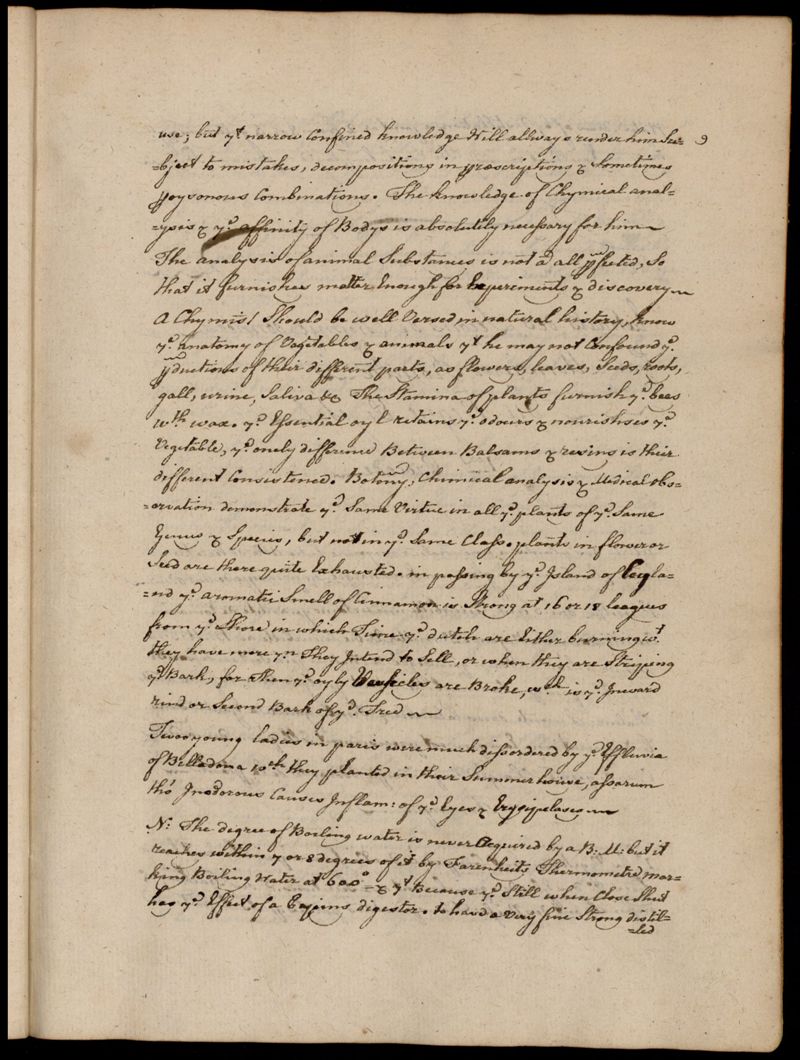 use; but yt narrow Confined knowledge Will allways render him Su= 9
=bject to mistakes, decompositions in præscriptions & Sometimes
poysonous Combinations. The knowledge of Chymical anal=
=ysis & ye affinity of Bodys is absolutely necessary for him
The analysis of animal Substances is not at all pfected, So
that it furnishes matter Enough for Experiments & discovery
A Chymist Should be well Versed in natural history, know
ye anatomy of Vegetables & animals yt he may not Confound ye
pductions of their different parts, as flowers, leaves, Seeds, roots,
gall, urine, Saliva &c The Stamina of plants furnish ye bees
wth wax. ye Essential oyl retains ye odours & nourishes ye
Vegetable, ye onely difference Between Balsams & resins is their
different Consistence. Botany, Chimical analysis & Medical obs=
=ervation demonstrate ye Same Virtue in all ye plants of ye Same
Genus & Species, but not in ye Same Class. plants in flower or
Seed are there quite Exhausted. in passing by ye Island of Ceyla=
=nd ye aromatic Smell of Cinnamon is Strong at 16 or 18 leagues
from ye Shore in which Time ye dutch are Either burning wt
they have more yn They Intend to Sell, or when they are Stripping
ye Bark, for Then ye oyly Vessicles are Broke, wch is ye Inward
rind or Second Bark of ye Tree
Twoo young ladies in paris were much dissordered by ye Effluvia
of Belladona wch they planted in their Summer house, assarum
tho' Inodorous Causes Inflam: of ye Eyes & Erysipelases
N: The degree of Boiling water is never acquired by a B: M: but it
reaches within 7 or 8 degrees of it by Farenheits Thermometre mar=
king Boiling Water at 600° & yt Because ye Still when Close Shut
has ye Effect of a digestor. to have a Very fine Strong distil=
=led